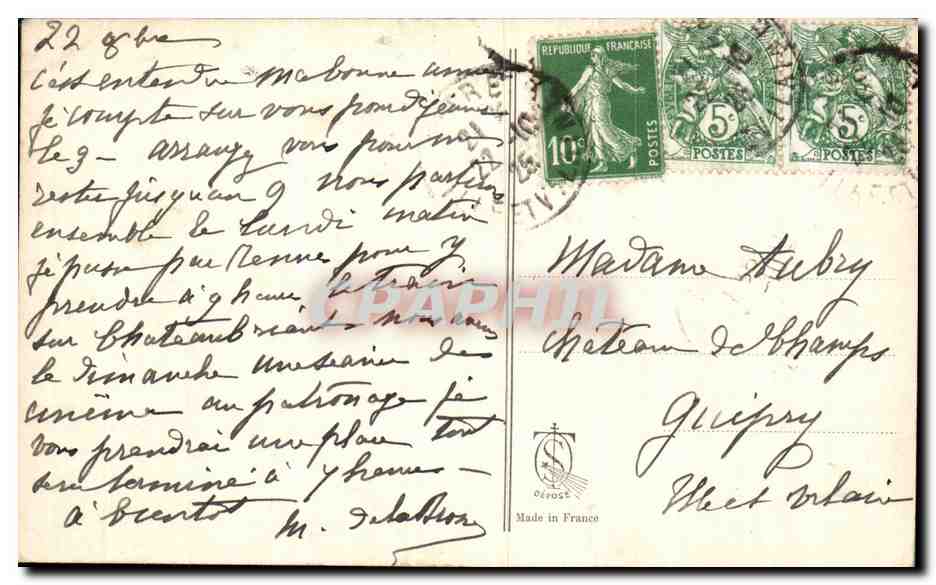 22 8bre
c'est entendu ma bonne amie
je compte sur vous pour déjeuner
le 3 - arrangez vous pour
rester jusquau 9 nous partirons
ensemble le lundi matin
je passe par Rennes pour y
prendre à 9 heures le train
sur Chateaubriant nous avons
le Dimanche une séance de
cinéma au patronage je
vous prendrai une place tout
sera terminé à 7 heures -
à bientôt
M. de la
REPUBLIQUE FRANÇAISE
10c
POSTES
5c
POSTES
5c
POSTES
Madame Aubry
Château des Champs
Guipry
Ille et Vilaine
CPAPHIL
DÉPOSÉ
Made in France